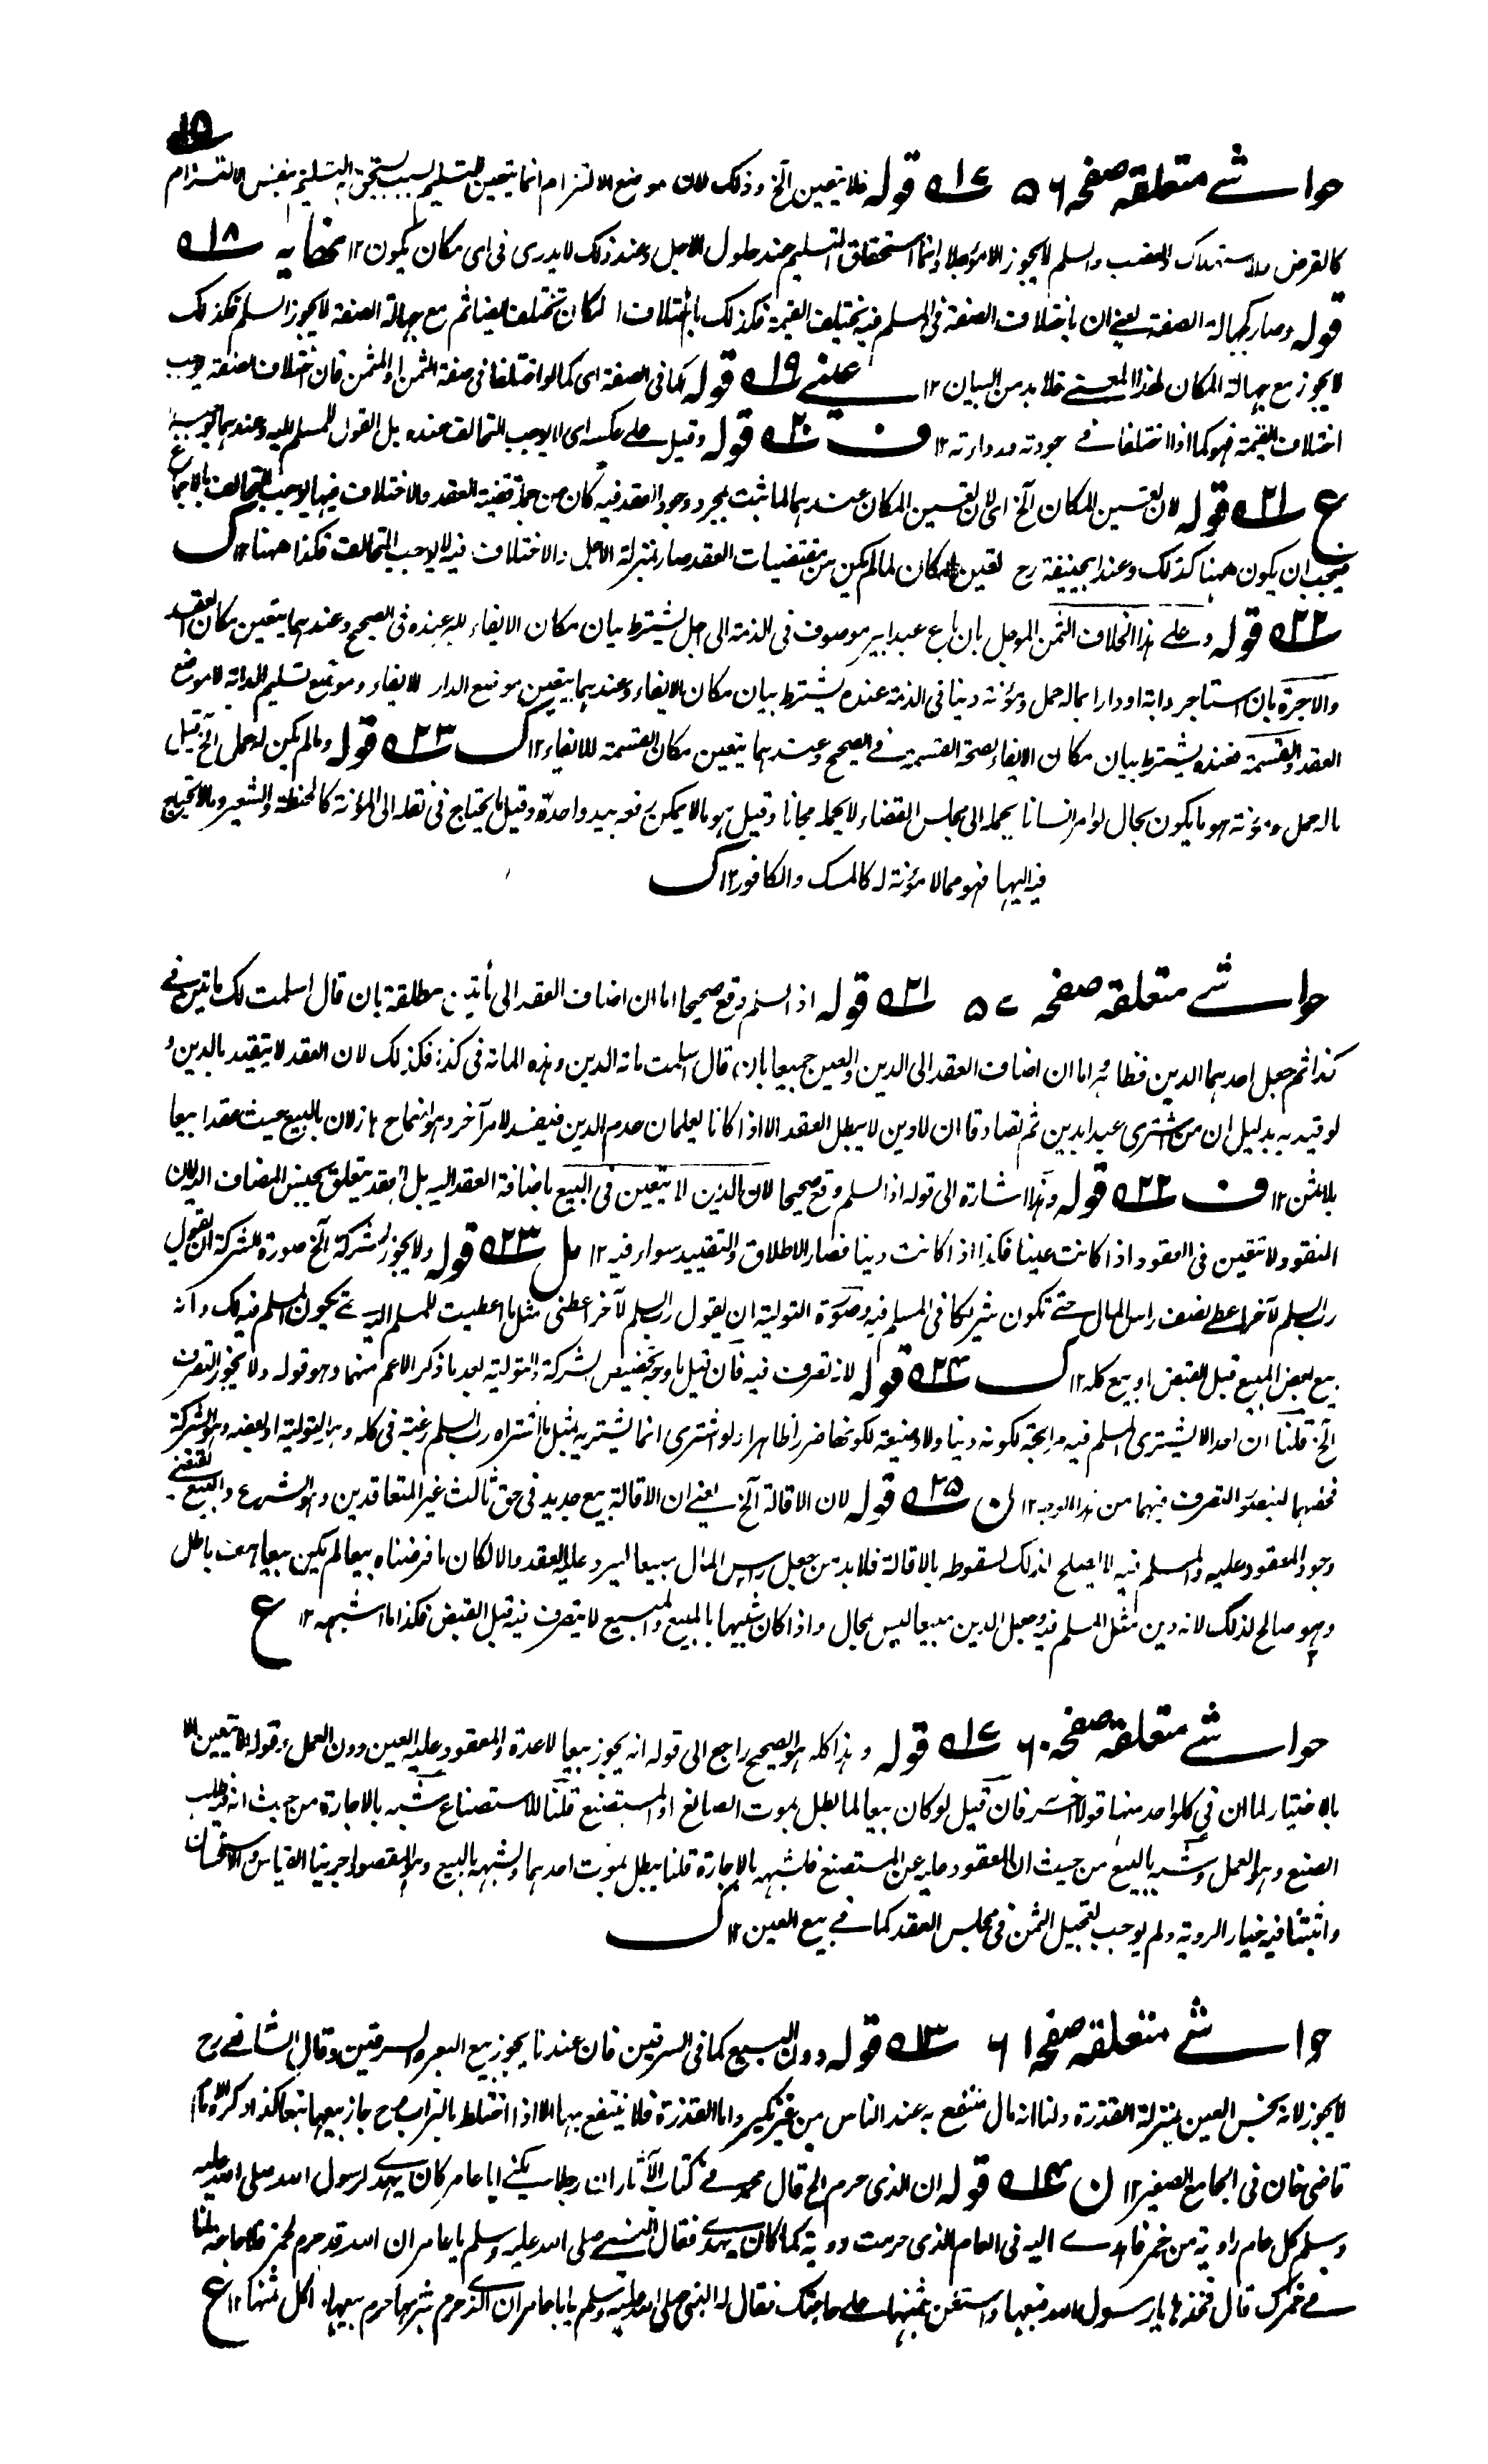 ١٥
حواشے متعلقہ صفحہ ٥٦ ١٧ قوله فلا يتعين الخ وذلک لان موضع الالتزام انما يتعين للتسليم بسبب يستحق به التسليم بنفس الالتزام
كالقرض والاستهلاک والغصب والسلم لا يجوز الا مؤجلا وانما استحقاق التسليم عند حلول الاجل وعند ذلک لا يدری فی ای مكان يكون ١٢ كفايه ١٨
قوله وصار كجهالة الصفة يعنے ان باختلاف الصفة فی المسلم فيه يختلف القيمة فكذلک باختلاف المكان تختلف ايضا ثم مع جهالة الصفة لا يجوز السلم فكذلک
لا يجوز مع جهالة المكان لهذا المعنے فلا بد من البيان ١٢ عينے ١٩ قوله كما فی الصفة ای كما لو اختلفا فی صفة الثمن او المثمن فان اختلاف الصفة يوجب
اختلاف القيمة فهو كما اذا اختلفا فے جودته ورداءته ١٢ ف ٢٠ قوله وقيل علے عكسه ای لا يوجب التحالف عنده بل القول للمسلم اليه وعندهما يوجبه
ع ٢١ قوله لان تعين المكان الخ ای لان تعين المكان عندهما لما ثبت بمجرد وجود العقد فيه كان من جملة قضية العقد والاختلاف فيها يوجب التحالف بالاجماع
فيجب ان يكون ههنا كذلک وعند ابی حنيفة رح تعين المكان لما لم يكن من مقتضيات العقد صار بمنزلة الاجل والاختلاف فيه لا يوجب التحالف فكذا ههنا ١٢ ک
٢٢ قوله وعلے هذا الخلاف الثمن المؤجل بان باع عبدا ببر موصوف فی الذمة الى اجل يشترط بيان مكان الايفاء للبر عنده فی الصحيح وعندهما يتعين مكان العقد
والاجرة بان استاجر دابة او دارا بما له حمل ومؤنة دينا فی الذمة عنده يشترط بيان مكان الايفاء وعندهما يتعين موضع الدار للايفاء وموضع تسليم الدابة لا موضع
العقد والقسمة فعنده يشترط بيان مكان الايفاء لصحة القسمة فے الصحيح وعندهما يتعين مكان القسمة للايفاء ١٢ ک ٢٣ قوله وما لم يكن له حمل الخ قيل
ما له حمل ومؤنة هو ما يكون بحال لو امر انسانا بحمله الى مجلس القضاء لا يحمله مجانا وقيل هو ما لا يمكن رفعه بيد واحدة وقيل ما يحتاج فی نقله الى المؤنة كالحنطة والشعير وما لا يحتاج
فيه اليها فهو مما لا مؤنة له كالمسک والكافور ١٢ ک
حواشے متعلقہ صفحہ ٥٧ ٢١ قوله اذ السلم وقع صحيحا اما ان اضاف العقد الى مأتين مطلقة بان قال اسلمت لک مائتين فے
كذا ثم جعل احدهما الدين فظاهر اما ان اضاف العقد الى الدين والعين جميعا بان قال اسلمت مائة الدين وهذه المائة فی كذا فكذلک لان العقد لا يتقيد بالدين و
لو قيد به بدليل ان من اشترى عبدا بدين ثم تصادقا ان لا دين لا يبطل العقد الا اذا كانا يعلمان عدم الدين فيفسد لامر آخر وهو انهما ح هازلان بالبيع حيث عقدا بيعا
بلا ثمن ١٢ ف ٢٢ قوله وهذا اشارة الى قوله اذ السلم وقع صحيحا لان الدين لا يتعين فی البيع باضافة العقد اليه بل العقد يتعلق بجنس المضاف اليه لان
النقود لا تتعين فی العقود اذا كانت عينا فكذا اذا كانت دينا فصار الاطلاق والتقييد سواء فيه ١٢ مل ٢٣ قوله ولا يجوز الشركة الخ صورة الشركة ان يقول
رب السلم لآخر اعطے نصف راس المال حتے تكون شريكا فی المسلم فيه وصورة التولية ان يقول رب السلم لآخر اعطنی مثل ما اعطيت للمسلم اليه حتے يكون المسلم فيه لک وانه
بيع بعض المبيع قبل القبض او بيع كله ١٢ ک ٢٤ قوله لانه تصرف فيه فان قيل ما وجه تخصيص الشركة والتولية بعد ما ذكر الاعم منهما وهو قوله ولا يجوز التصرف
الخ قلنا ان احدا لا يشتری المسلم فيه مرابحة لكونه دينا ولا وضيعة لكونها ضررا ظاهرا ولو اشترى انما يشتريه بمثل ما اشتراه رب السلم رغبة فی كله وهو التولية او بعضه وهو الشركة
فخصهما التصرف فيهما من هذا الوجه ١٢ ن ٢٥ قوله لان الاقالة الخ يعنے ان الاقالة بيع جديد فی حق ثالث غير المتعاقدين وهو الشرع والبيع يقتضے
وجود المعقود عليه والمسلم فيه لا يصلح لذلک لسقوطه بالاقالة فلا بد من جعل راس المال مبيعا ليرد عليه العقد والا لكان ما فرضناه بيعا لم يكن بيعا هف باطل
وهو صالح لذلک لانه دين مثل المسلم فيه وجعل الدين مبيعا ليس بمحال واذا كان شبيها بالمبيع والمبيع لا يتصرف فيه قبل القبض فكذا ما اشبهه ١٢ ع
حواشے متعلقہ صفحہ ٦٠ ١٧ قوله وهذا كله هو الصحيح راجع الى قوله انه يجوز بيعا لا عدة والمعقود عليه العين دون العمل وقوله لا يتعين الا
بالاختيار لما ان فی كل واحد منها قولا آخر فان قيل لو كان بيعا لما بطل بموت الصانع او المستصنع قلنا للاستصناع شبه بالاجارة من حيث انه فيه طلب
الصنع وهو العمل وشبه بالبيع من حيث ان المعقود عليه عين المستصنع فلشبهه بالاجارة قلنا يبطل بموت احدهما ولشبهه بالبيع وهو المقصود اجرينا القياس والاستحسان
واثبتنا فيه خيار الروية ولم يوجب تعجيل الثمن فی مجلس العقد كما فے بيع العين ١٢ ک
حواشے متعلقہ صفحہ ٦١ ١٣ قوله دون البيع كما فی السرقين فان عندنا يجوز بيع البعر والسرقين وقال الشافعے رح
لا يجوز لانه نجس العين بمنزلة العذرة ولنا انه مال منتفع به عند الناس من غير نكير واما العذرة فلا ينتفع بها الا اذا اختلط بالتراب ح جاز بيعها تبعا كذا ذكره الامام
قاضی خان فی الجامع الصغير ١٢ ن ١٤ قوله ان الذی حرم الخ قال محمد فے كتاب الآثار ان رجلا يكنے ابا عامر كان يهدے لرسول الله صلى الله عليه
وسلم كل عام راوية من خمر فاهدے اليه فی العام الذی حرمت راوية كما كان يهدے فقال النبے صلى الله عليه وسلم يا عامر ان الله قد حرم الخمر فلا حاجة لنا
فے خمرک قال فخذها يا رسول الله فبعها واستعن بثمنها علے حاجتک فقال له النبی صلى الله عليه وسلم يا ابا عامر ان الذے حرم شربها حرم بيعها واكل ثمنها ١٢ ع